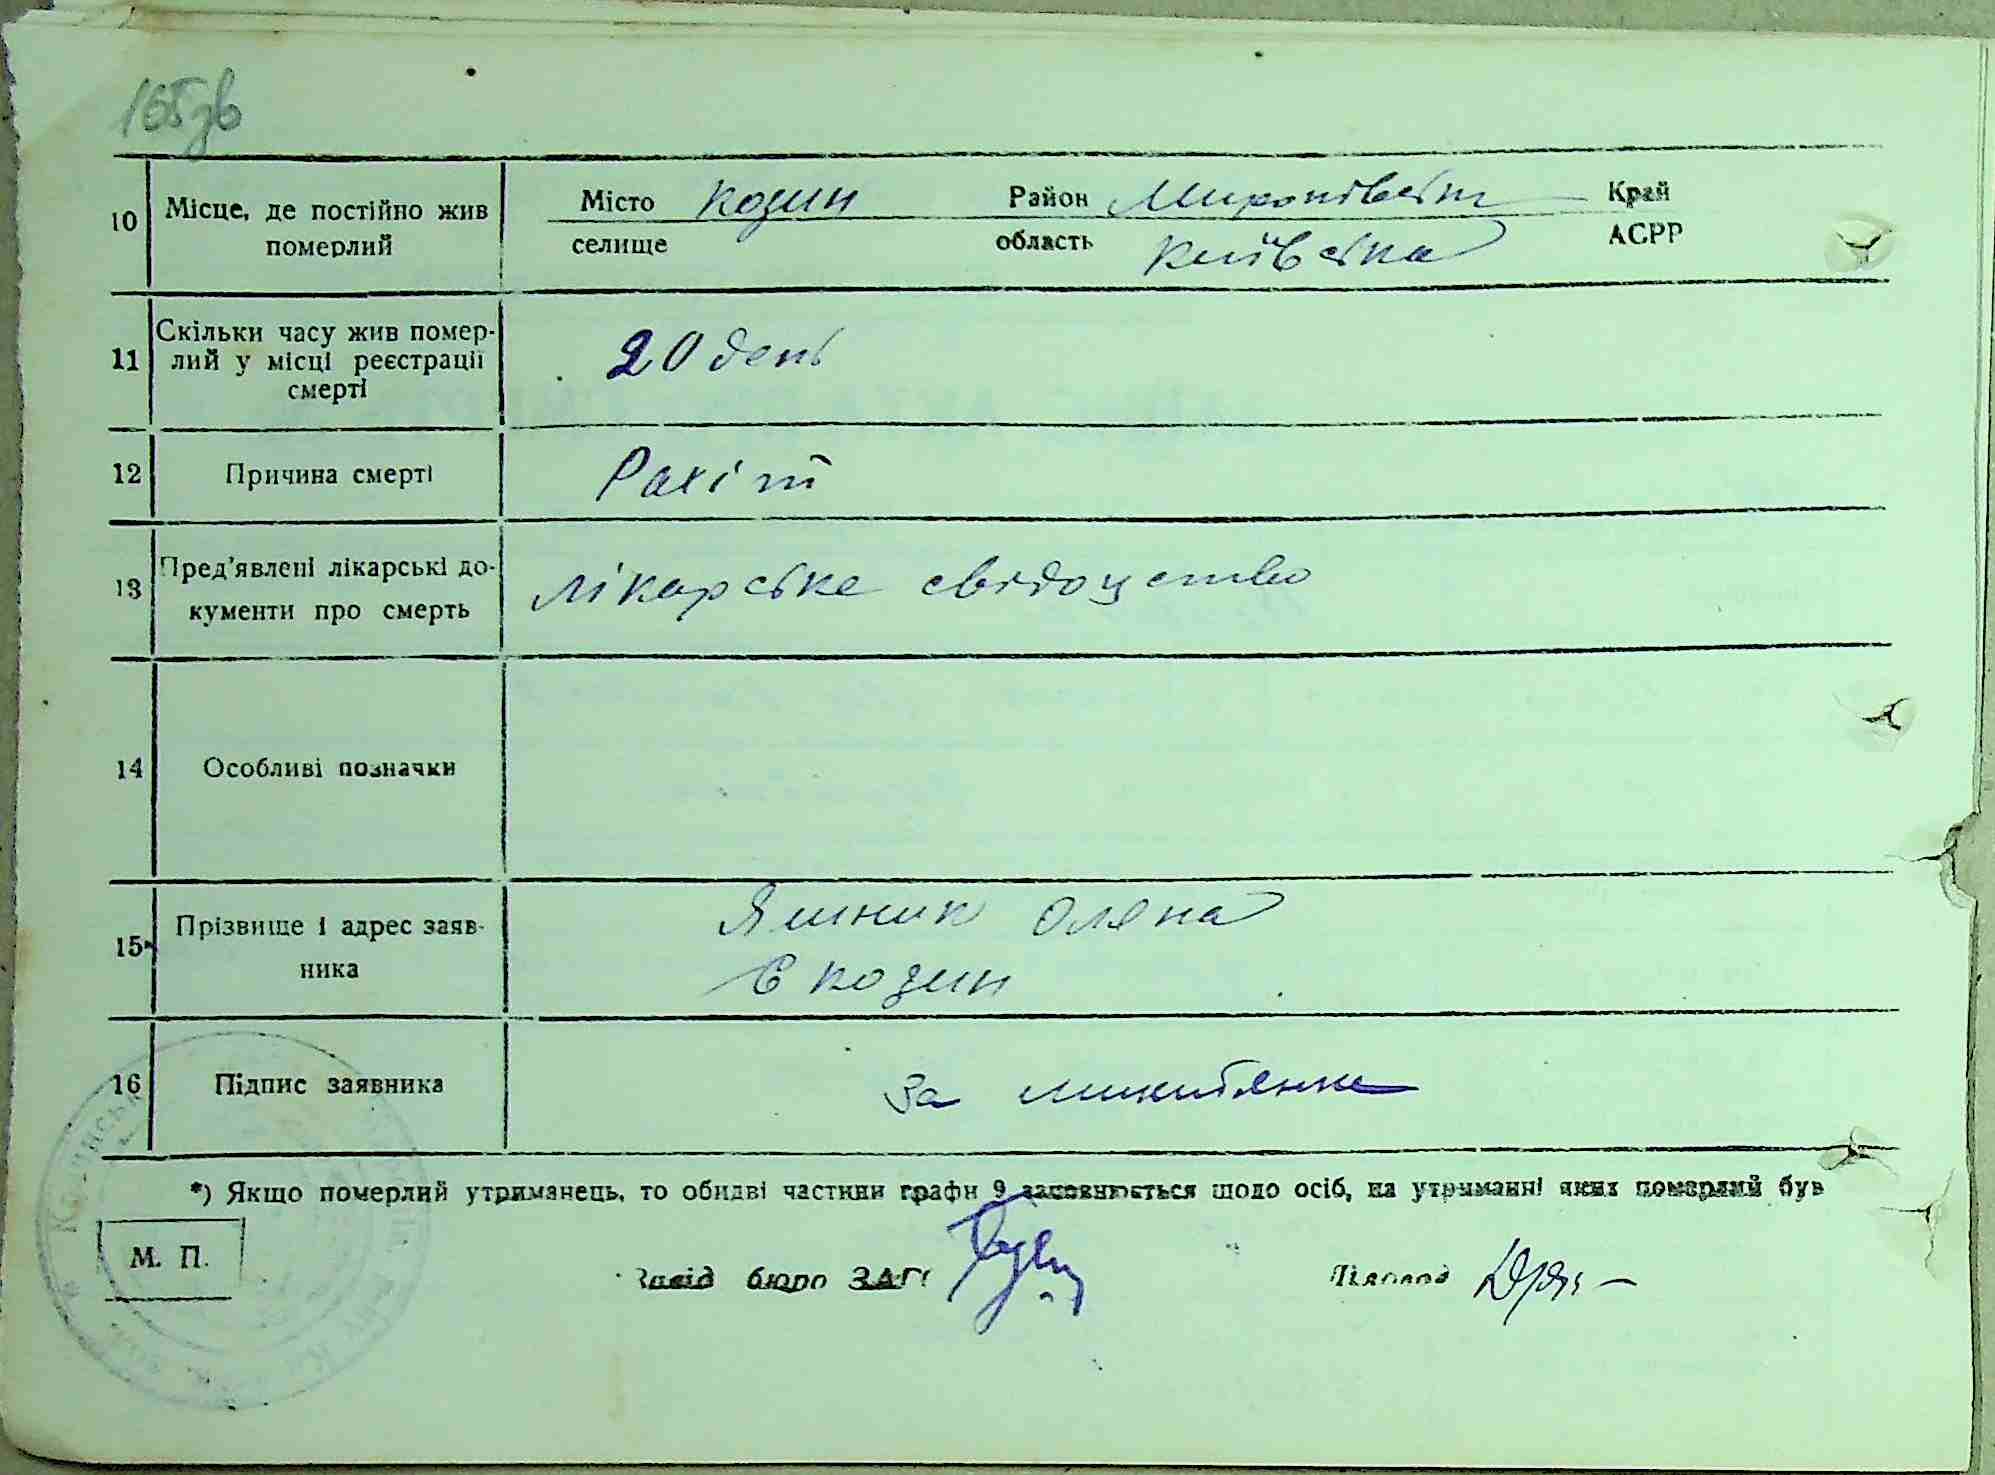 165зв
10 Місце, де постійно жив померлий
Місто Козин Район Миронівськ Край
селище область Київська АСРР
11 Скільки часу жив помер-
лий у місці реєстрації
смерті
20 день
12 Причина смерті Рахіт
13 Пред'явлені лікарські до-
кументи про смерть
лікарське свідоцтво
14 Особливі позначки
15 Прізвище і адрес заяв-
ника
Яшник Оляна
с Козин
16 Підпис заявника За
*) Якщо померлий утриманець, то обидві частини графи 9 заповнюється щодо осіб, на утриманні яких померлий був
М. П. Завід бюро ЗАГС Діловод